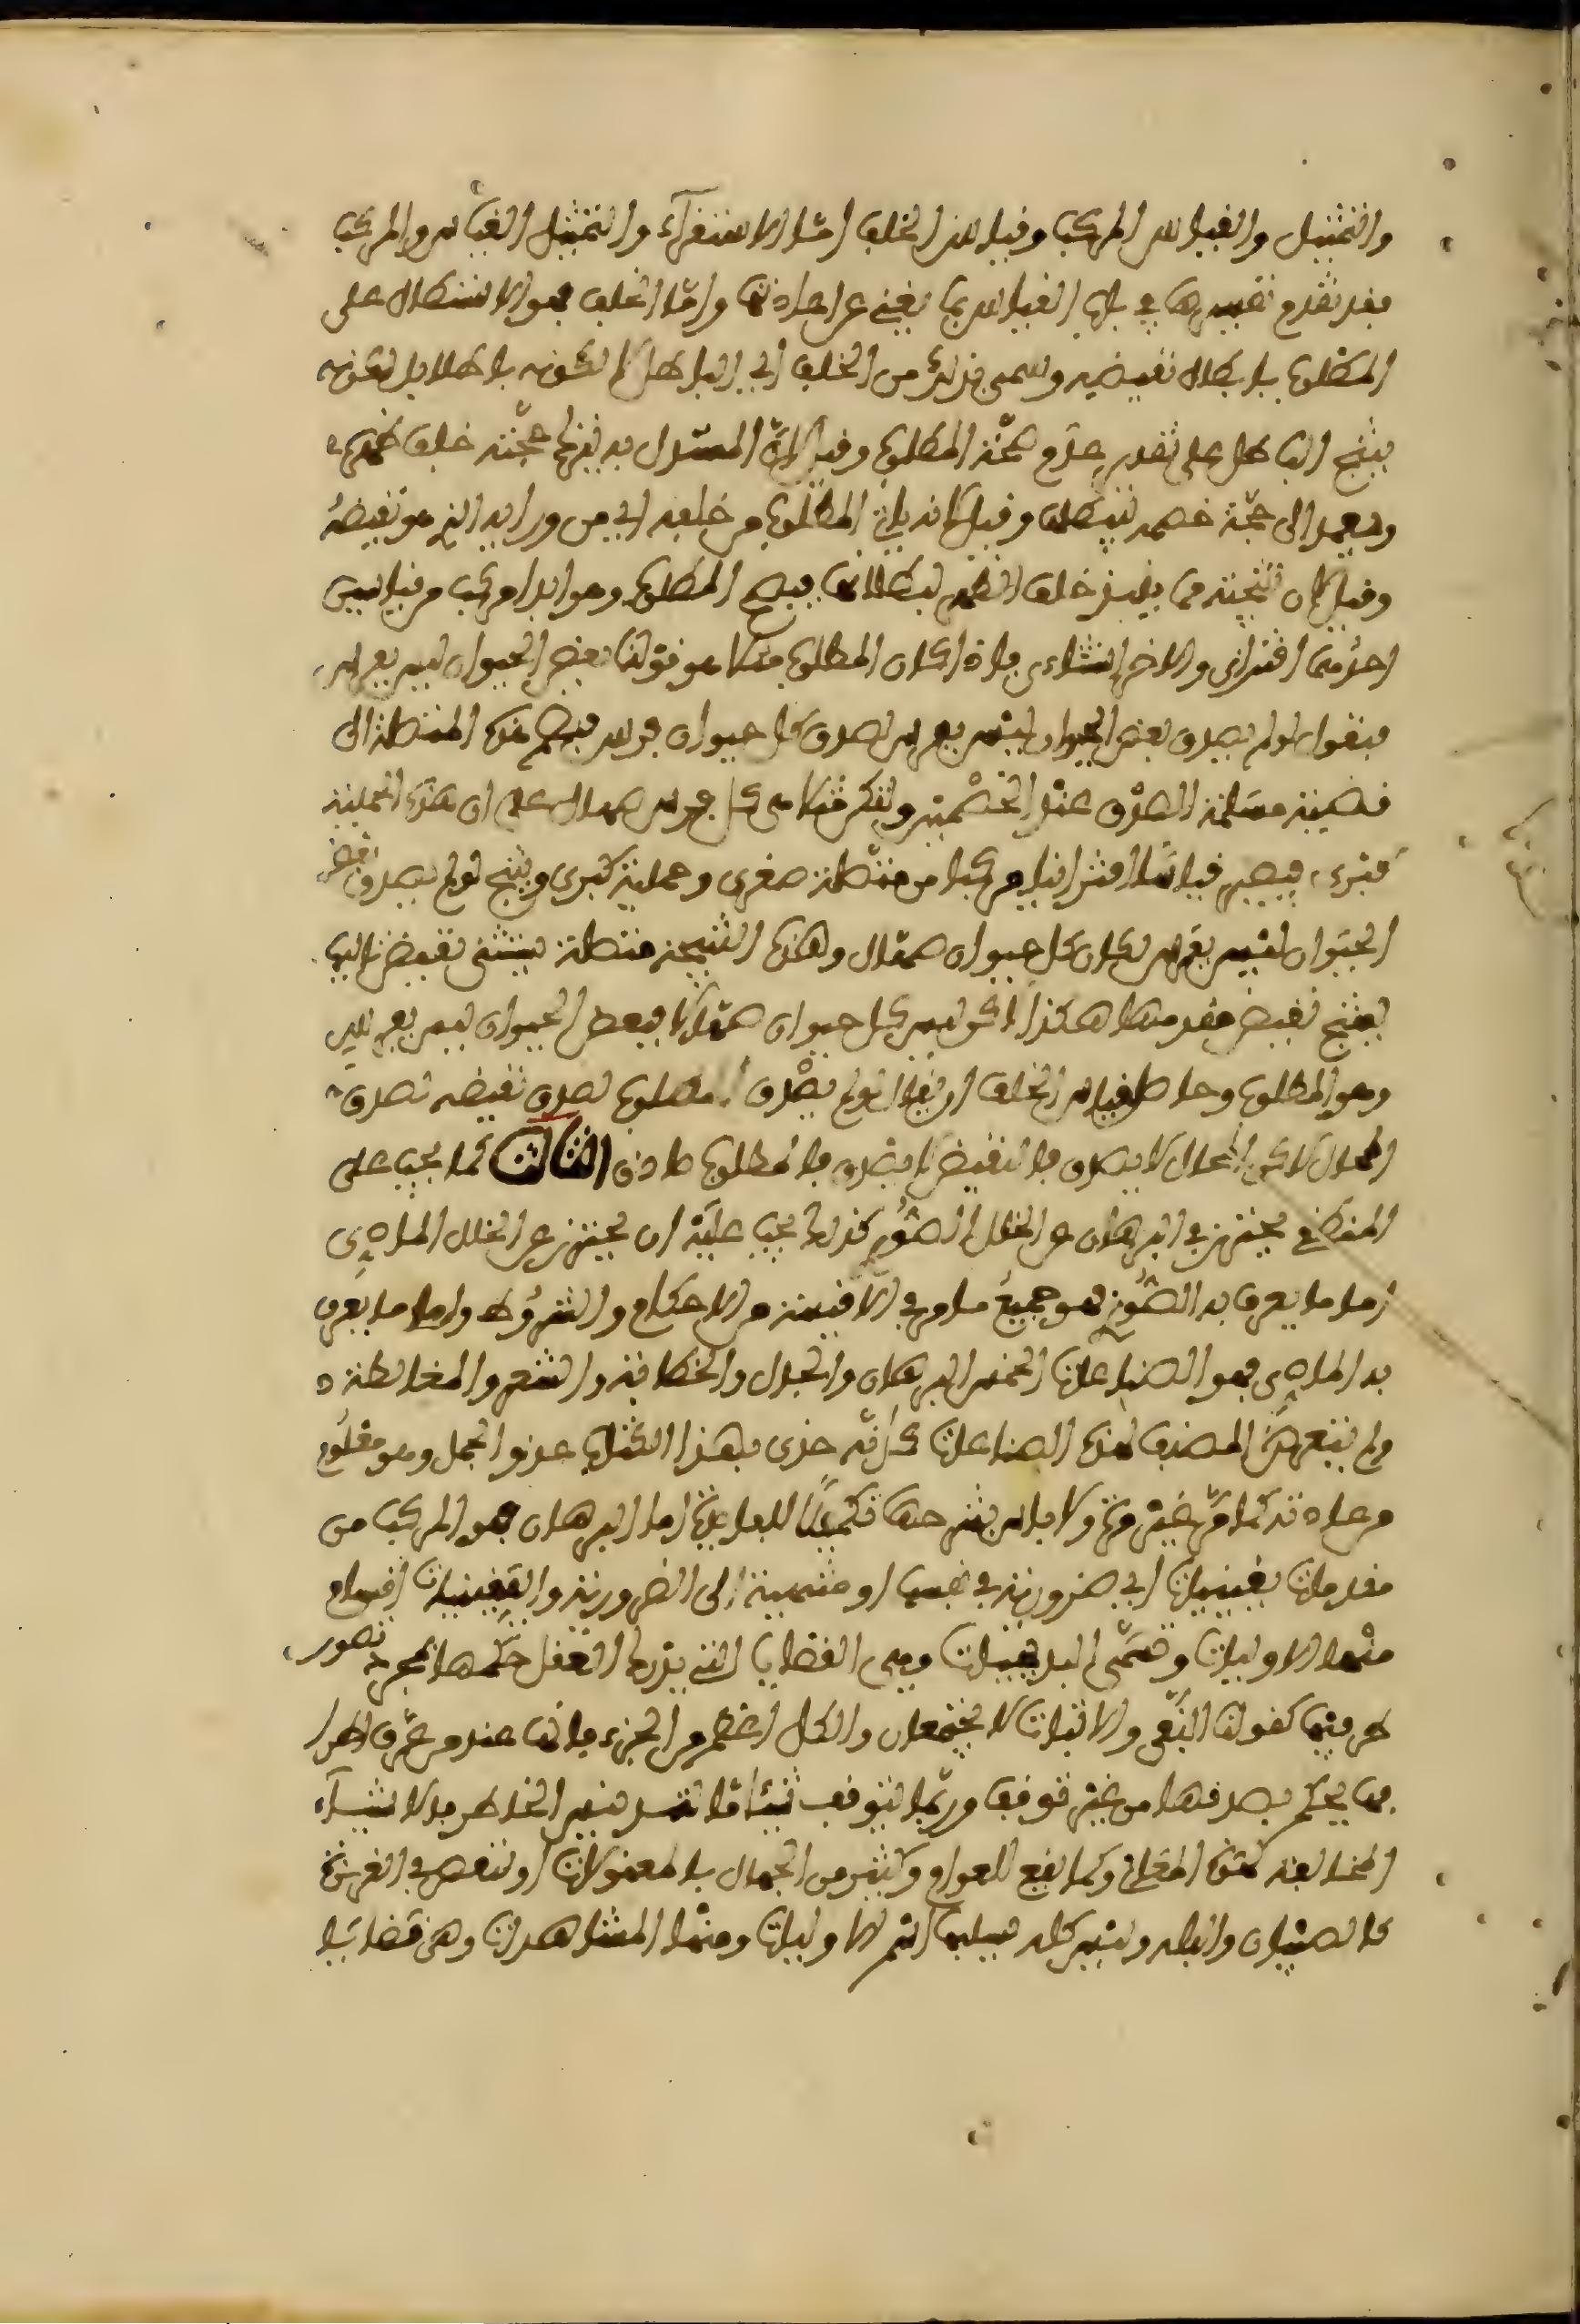 والتمثيل والقياس المركب وقياس الخلف اما الاستقراء والتمثيل والقياس المركب
فقد تقدم تفسيرها في باب القياس بما يغني عن اعادتها واما الخلف فهو الاستدلال على
المطلوب بابطال نقيضه وسمي بذلك من الخلف اي الباطل لا لكونه باطلا بل لكونه
ينتج الباطل على تقدير عدم صحة المطلوب وقيل لان المستدل به يترك حجته خلف ظهره
ويعمد الى حجة خصمه فيبطلها وقيل لانه ياتي المطلوب من خلفه اي من ورائه الذي هو نقيضه
وقيل لان نتيجته مما ينبذ خلف الظهر لبطلانها فيصح المطلوب وهو ابدا مركب من قياسين
احدهما اقتراني والاخر استثنائي فاذا كان المطلوب مثلا هو قولنا بعض الحيوان ليس بفرس
فيقول لو لم يصدق بعض الحيوان ليس بفرس لصدق كل حيوان فرس فيضم هذه المتصلة الى
قضية مسلمة الصدق عند الخصمين ولتكن مثلا هي كل فرس صهال على ان هذه الحملية
كبرى فيصير قياسا اقترانيا مركبا من متصلة صغرى وحملية كبرى وينتج لو لم يصدق بعض
الحيوان ليس بفرس لكان كل حيوان صهال وهذه النتيجة متصلة يستثنى نقيض تاليها
ينتج نقيض مقدمها هكذا لكن ليس كل حيوان صهالا فبعض الحيوان ليس بفرس
وهو المطلوب وحاصل قياس الخلف ان يقال لو لم يصدق المطلوب لصدق نقيضه لصدق
المحال لكن المحال لا يصدق فالنقيض لا يصدق فالمطلوب صادق الثالث كما يجب على
المنطقي يحترز في البرهان عن الخلل الصوري كذلك يجب عليه ان يحترز عن الخلل المادي
اما ما يعرف به الصوري فهو جميع ما مر في الاقيسة من الاحكام والشروط واما ما يعرف
به المادي فهو الصناعات الخمس البرهان والجدل والخطابة والشعر والمغالطة
ولم يتعرض المصنف لهذه الصناعات لانه حذى بهذا الكتاب حذو الجمل وهو مقلوب
من عادته كما مر غير مرة ولا باس بشرحها تكميلا للفائدة اما البرهان فهو المركب من
مقدمات يقينيات اي ضرورية في نفسها او منتهية الى الضرورية واليقينيات اقسام
منها الاوليات وتسمى البديهيات وهي القضايا التي يدرك العقل حكمها بمجرد تصور
طرفيها كقولنا النفي والاثبات لا يجتمعان والكل اعظم من الجزء فانها عند من عرف اطرا
فها يحكم بصدقها من غير توقف وربما يتوقف شيئا ما لتشتت الخاطر بالاشياء
المخالفة لهذا المعنى وكما يقع للعوام وكثير من الجهال بالمعقولات او لنقص في الغريزة
كالصبيان والبله وليس كله سالبا اسم الاوليات ومنها المشاهدات وهي قضايا